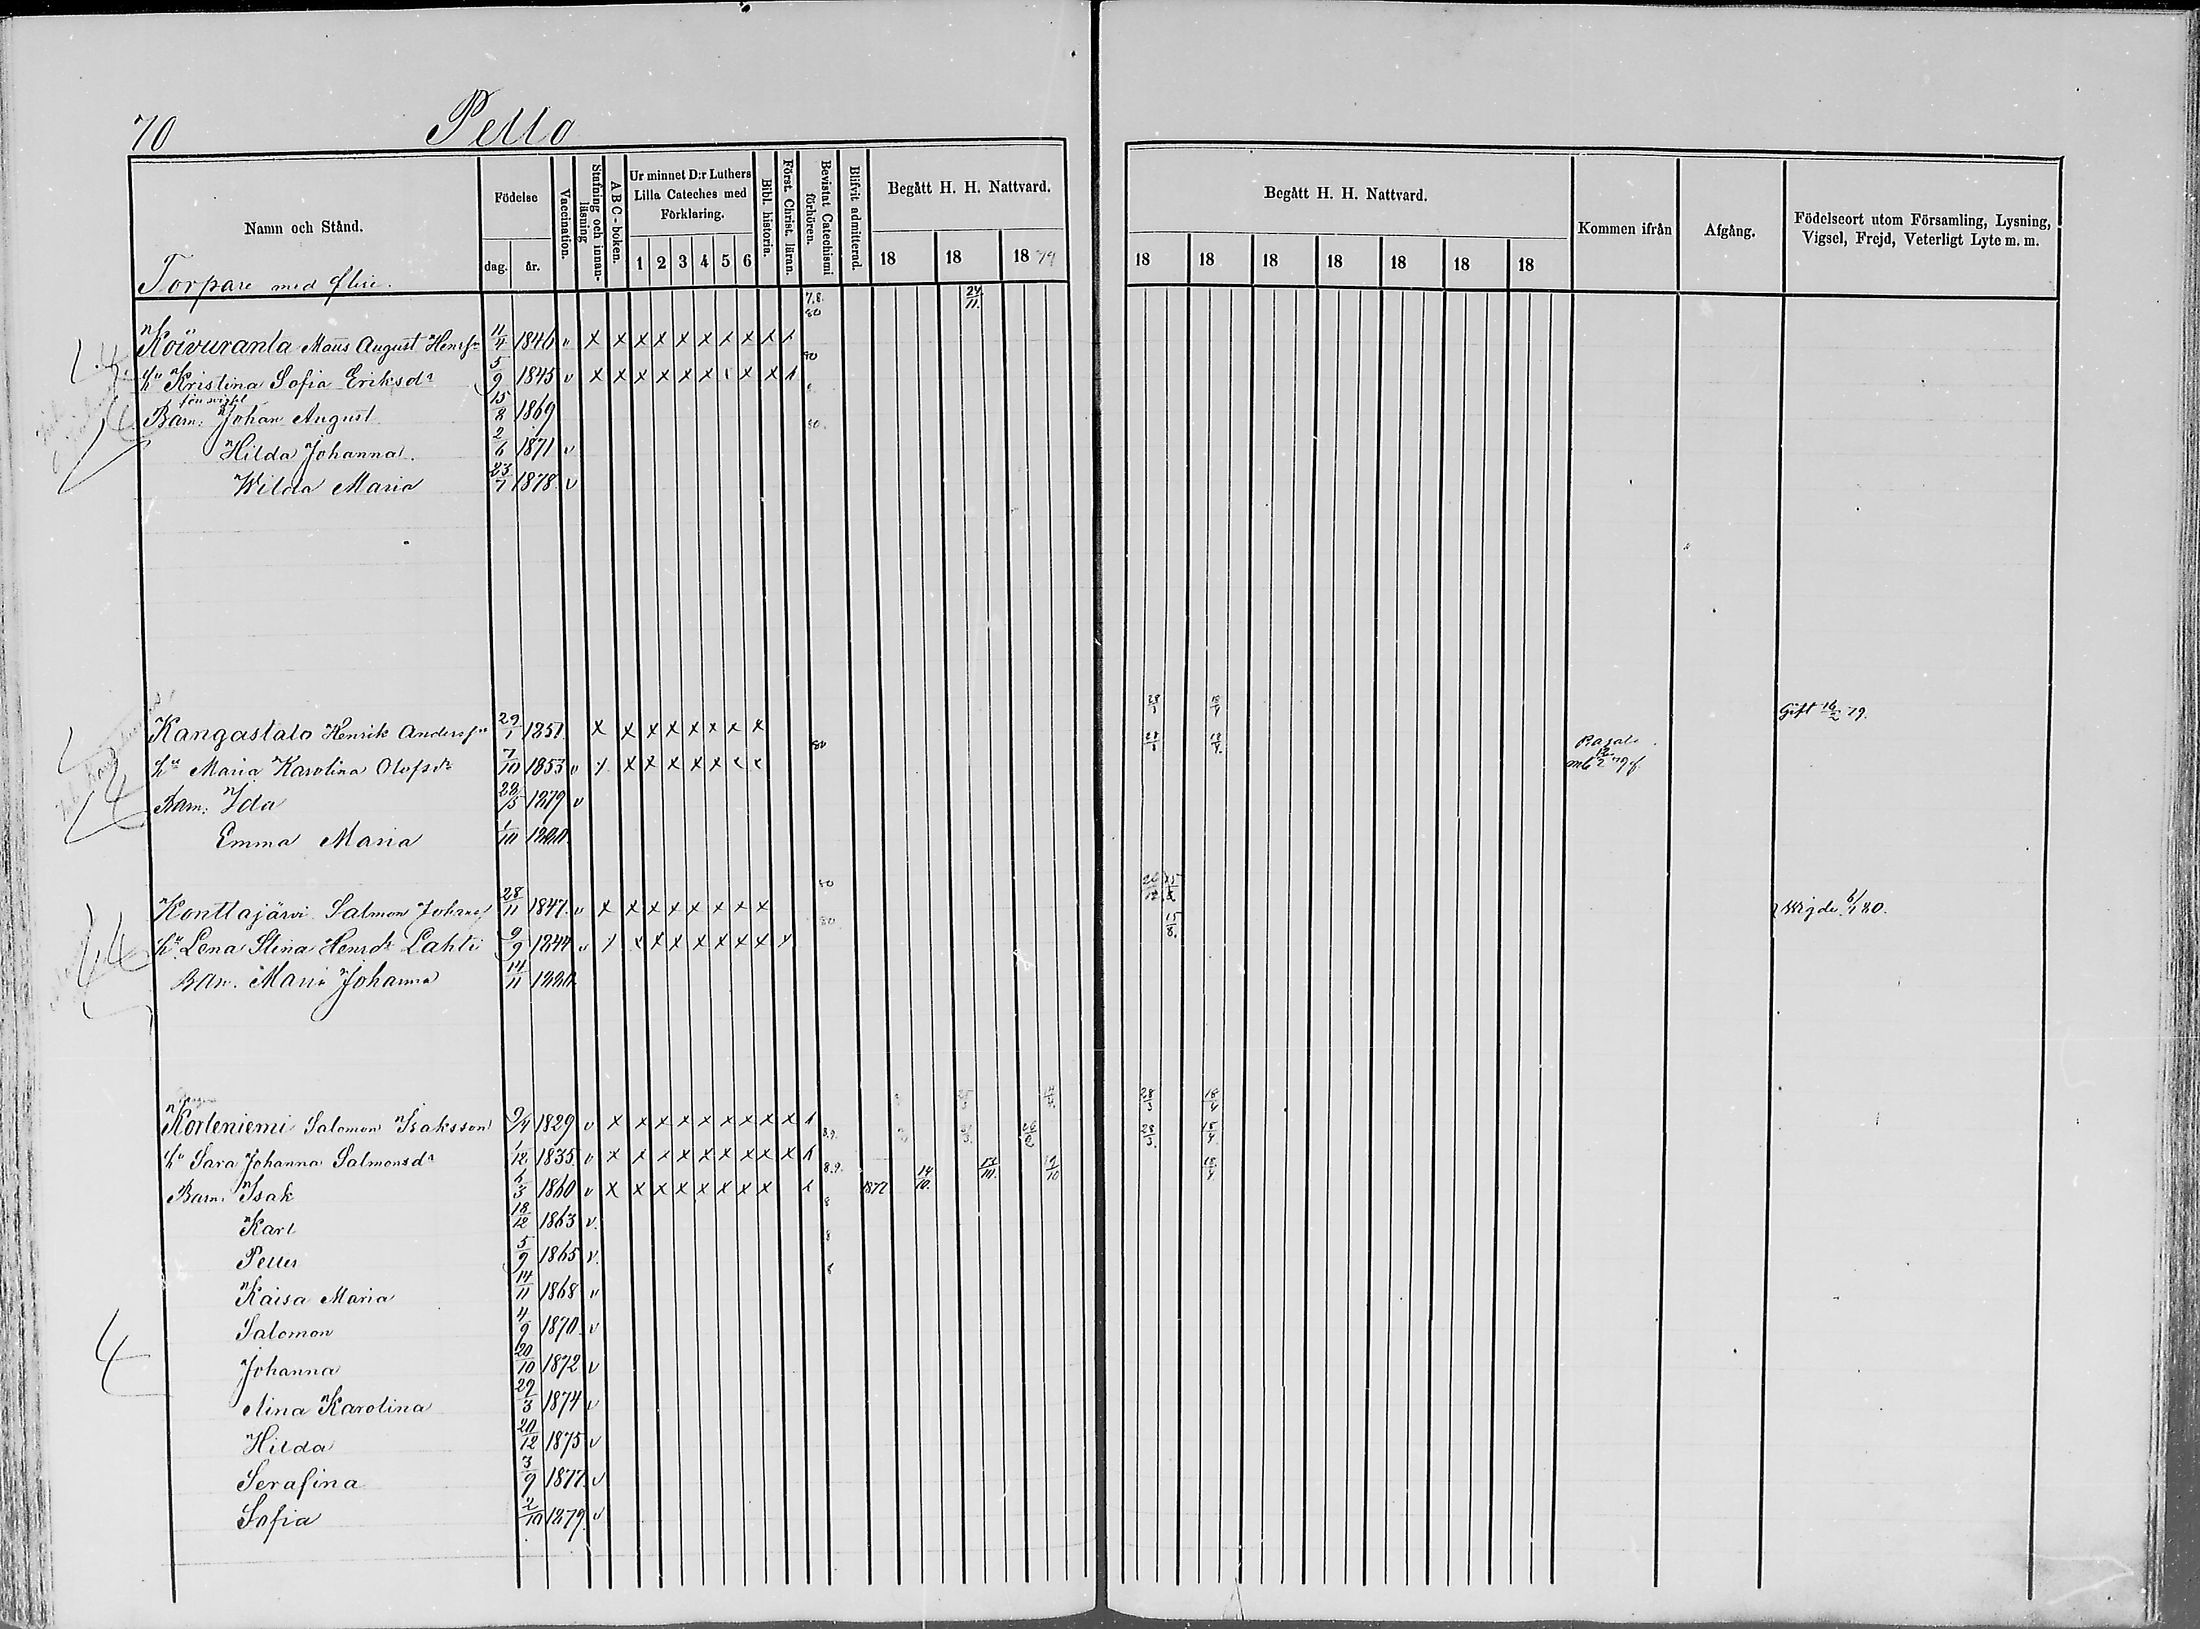 70 Pello
Namn och Stånd.
Födelse
dag. år.
Vaccination.
Stafning och innanläsning
ABC-boken.
Ur minnet D:r Luthers
Lilla Cateches med
Förklaring.
1 2 3 4 5 6
Bibl. historia.
Först. Christ. läran.
Bevistat Catechismi förhören.
Blifvit admitterad.
Begått H. H. Nattvard.
18 18 18 79
Begått H. H. Nattvard.
18 18 18 18 18 18 18
Kommen ifrån
Afgång.
Födelseort utom Församling, Lysning,
Vigsel, Frejd, Veterligt Lyte m. m.
Torpare med flere.
7.8. 24/11.
80
Koivuranta Matts August Henrsn 11/4 1846 v x x x x x x x x x x
80
hu Kristina Sofia Eriksdr 5/9 1845 v x x x x x x x x x x
8
Barn: Johan August 15/8 1869
80.
Hilda Johanna 2/6 1871 v
Wilda Maria 23/7 1878 v
28/3 18/4 Gift 16/2 79.
Kangastalo Henrik Andersson 29/1 1851 x x x x x x x x
80 28/3 18/4
hu Maria Karolina Olofsdr 7/10 1853 v x x x x x x x x
Barn: Ida 28/5 1879 v
Emma Maria 1/10 1880
80 15/8
Konttajärvi Salmon Johans. 28/11 1847 v x x x x x x x x Wigde 6/1 80.
80 15/8.
hu Lena Stina Henrdr Lahti 9/9 1844 v x x x x x x x x x
Barn. Maria Johanna 14/11 1880
28/3 18/4
Korteniemi Salomon Isaksson 9/4 1829 v x x x x x x x x x x
8.9. 28/3. 18/4
hu Sara Johanna Salmonsdr 1/12 1835 v x x x x x x x x x x
8.9. 14/10. 18/4
Barn: Isak 6/3 1860 v x x x x x x x x x 1877
8
Karl 18/12 1863 v.
8
Petter 5/9 1865 v.
8
Kaisa Maria 14/11 1868 v
Salomon 4/9 1870 v
Johanna 20/10 1872 v
Aina Karolina 29/3 1874 v
Hilda 20/12 1875 v
Serafina 3/9 1877 v
Sofia 2/10 1879 v